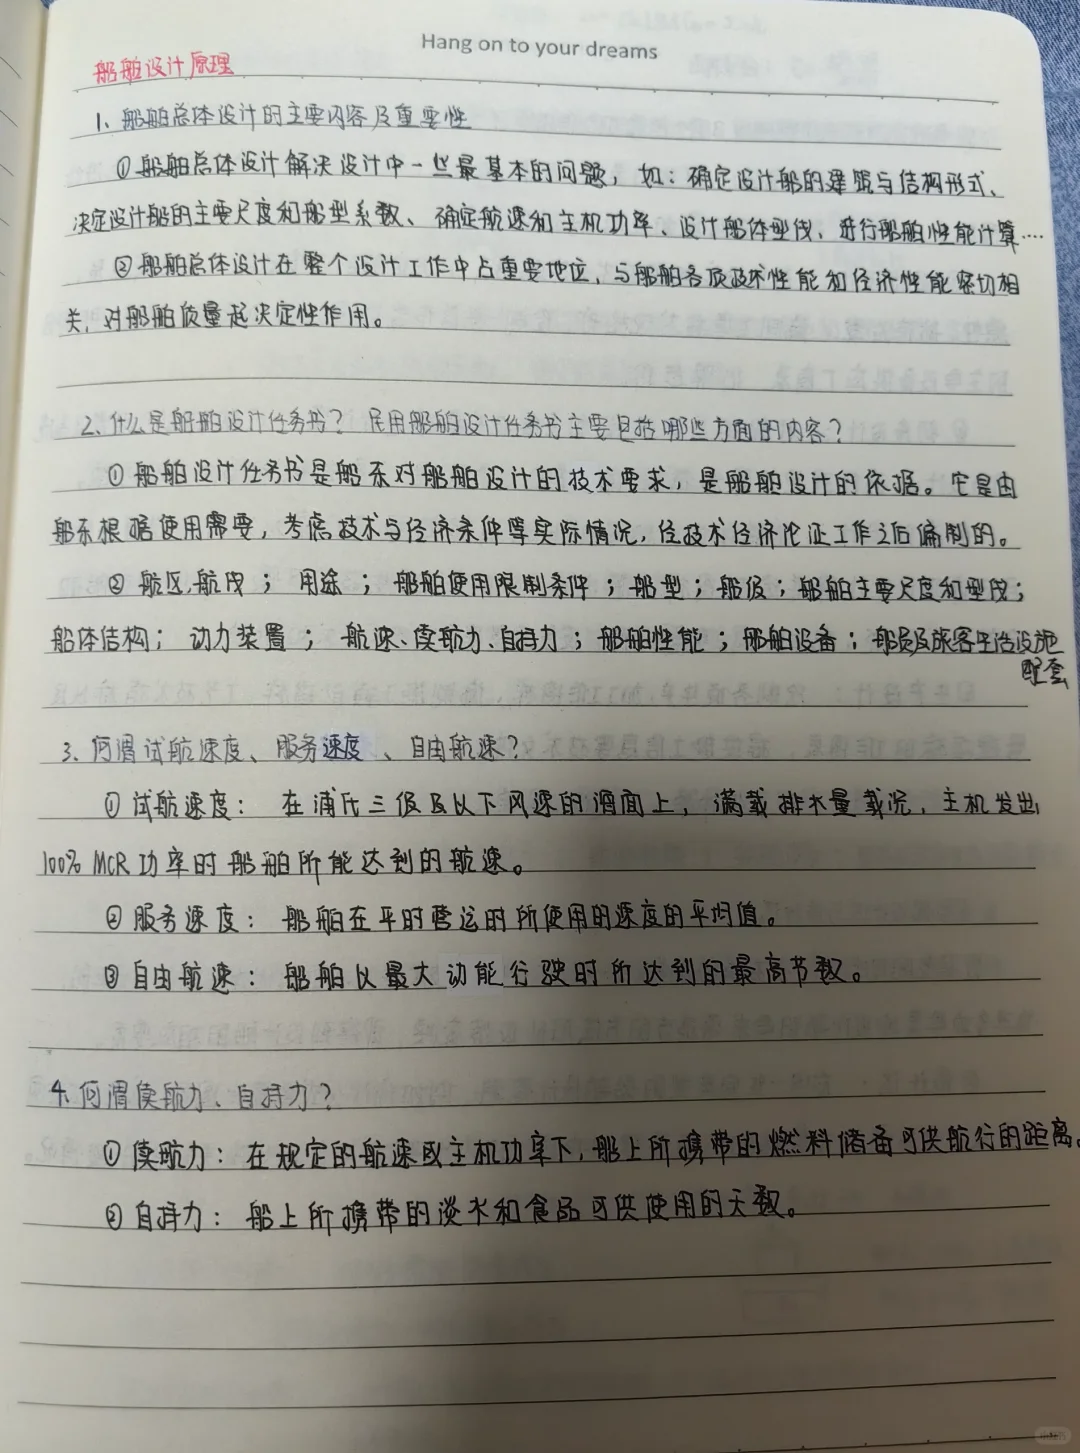 Hang on to your dreams
船舶设计原理
1、船舶总体设计的主要内容及重要性
①船舶总体设计解决设计中一些最基本的问题，如：确定设计船的建筑与结构形式、
决定设计船的主要尺度和船型系数、确定航速和主机功率、设计船体型线、进行船舶性能计算……
②船舶总体设计在整个设计工作中占重要地位，与船舶各项技术性能和经济性能密切相
关，对船舶质量起决定性作用。
2、什么是船舶设计任务书？民用船舶设计任务书主要包括哪些方面的内容？
①船舶设计任务书是船东对船舶设计的技术要求，是船舶设计的依据。它是由
船东根据使用需要，考虑技术与经济条件等实际情况，经技术经济论证工作之后编制的。
②航区、航线；用途；船舶使用限制条件；船型；船级；船舶主要尺度和型线；
船体结构；动力装置；航速、续航力、自持力；船舶性能；船舶设备；船员及旅客生活设施
配套
3、何谓试航速度、服务速度、自由航速？
①试航速度：在浦氏三级及以下风速的海面上，满载排水量载况，主机发出
100% MCR功率时船舶所能达到的航速。
②服务速度：船舶在平时营运时所使用的速度的平均值。
③自由航速：船舶以最大动能行驶时所达到的最高节数。
4、何谓续航力、自持力？
①续航力：在规定的航速或主机功率下，船上所携带的燃料储备可供航行的距离。
②自持力：船上所携带的淡水和食品可供使用的天数。
小红书